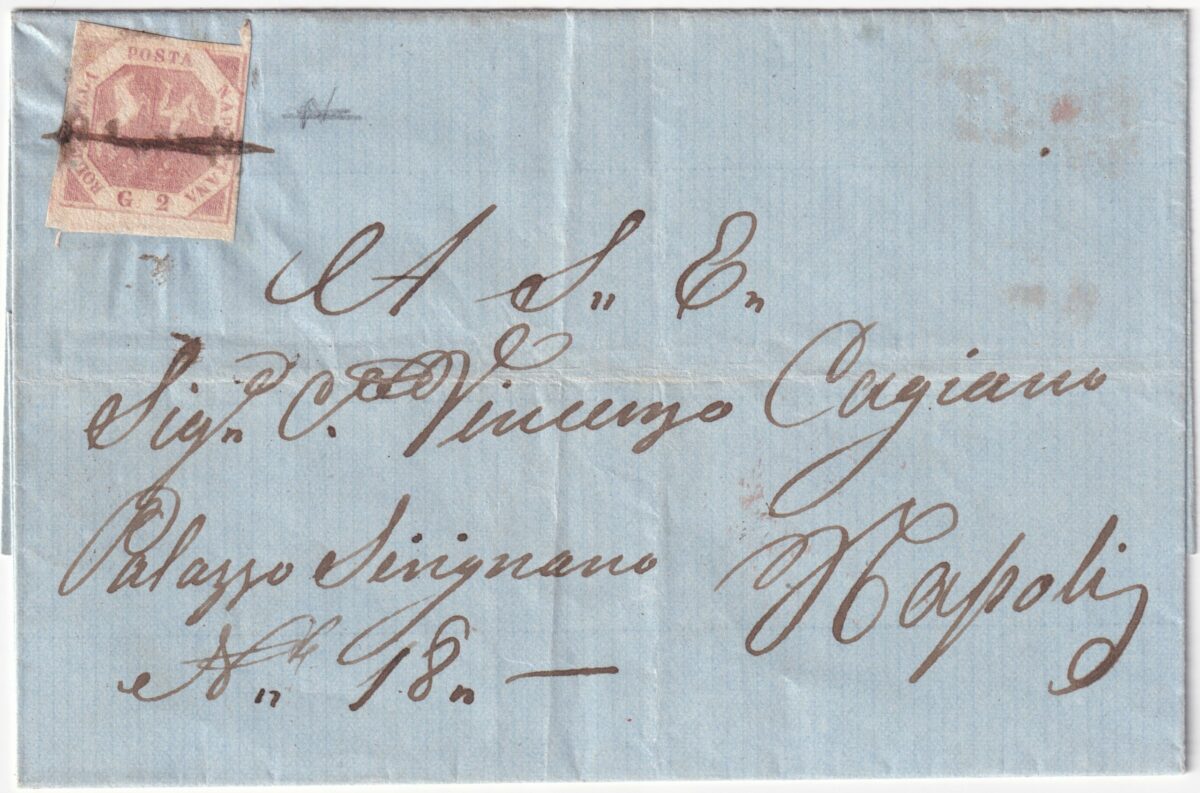 POSTA
NAPOLETANA
BOLLO DELLA
G 2
A S„ E„
Sig.r C. Vincenzo Cagiano
Palazzo Sirignano
Napoli
N„ 18„ —